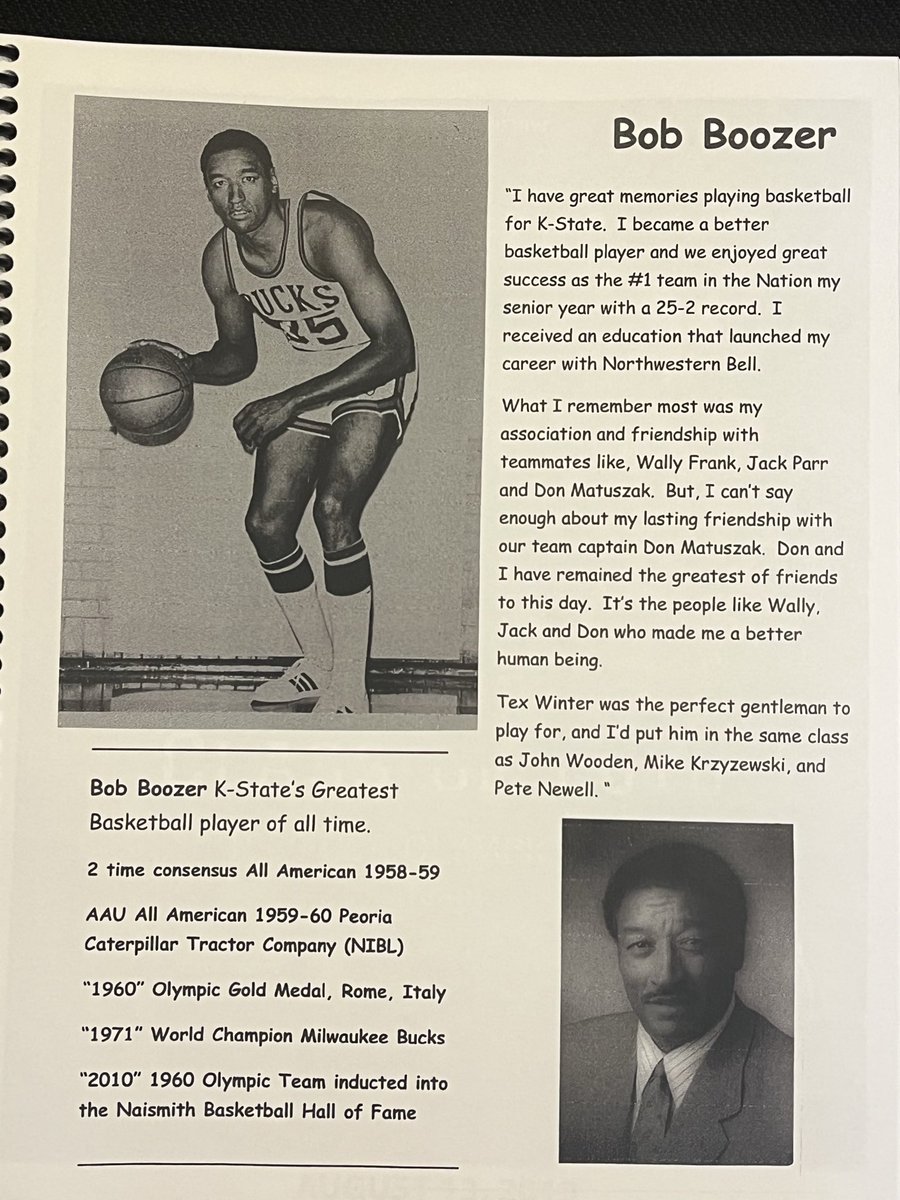 Bob Boozer
"I have great memories playing basketball
for K-State. I became a better
basketball player and we enjoyed great
success as the #1 team in the Nation my
senior year with a 25-2 record. I
received an education that launched my
career with Northwestern Bell.
What I remember most was my
association and friendship with
teammates like, Wally Frank, Jack Parr
and Don Matuszak. But, I can't say
enough about my lasting friendship with
our team captain Don Matuszak. Don and
I have remained the greatest of friends
to this day. It's the people like Wally,
Jack and Don who made me a better
human being.
Tex Winter was the perfect gentleman to
play for, and I'd put him in the same class
as John Wooden, Mike Krzyzewski, and
Pete Newell. "
UCKS
15
Bob Boozer K-State's Greatest
Basketball player of all time.
2 time consensus All American 1958-59
AAU All American 1959-60 Peoria
Caterpillar Tractor Company (NIBL)
"1960" Olympic Gold Medal, Rome, Italy
"1971" World Champion Milwaukee Bucks
"2010" 1960 Olympic Team inducted into
the Naismith Basketball Hall of Fame